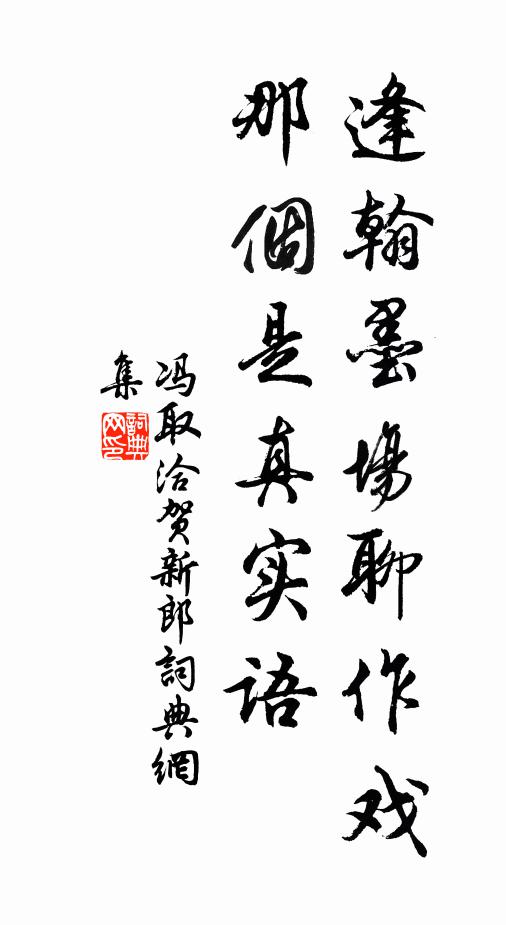 逢翰墨場聊作戏
那個是真实语
冯取洽贺新郎詞典網
集
詞典
网印